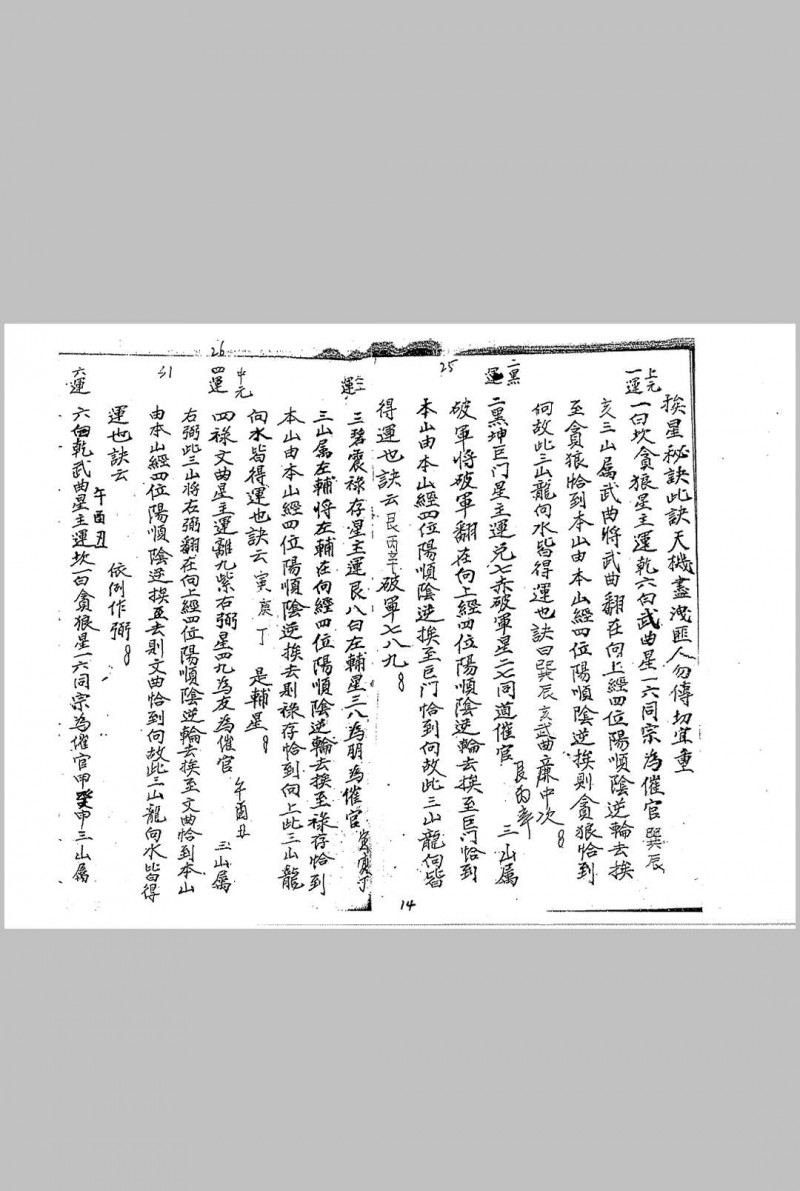 挨星秘訣此訣天機盡洩匪人勿傳切宜重
上元
一運
一白坎貪狼星主運乾六白武曲星一六同宗為催官巽辰
亥三山属武曲將武曲翻在向上經四位陽順陰逆輪去挨
至貪狼恰到本山由本山經四位陽順陰逆挨則貪狼恰到
向故此三山龍向水皆得運也訣曰巽辰亥武曲廉中次
二黑
運
二黑坤巨门星主運兑七赤破軍星二七同道催官 艮丙辛 三山属
破軍將破軍翻在向上經四位陽順陰逆輪去挨至巨門恰到
本山由本山經四位陽順陰逆挨至巨門恰到向故此三山龍向皆
得運也訣云艮丙辛破軍七八九
25
三
運
三碧震祿存星主運艮八白左輔星三八為朋為催官寅庚丁
三山属左輔將左輔在向經四位陽順陰逆輪去挨至祿存恰到
本山由本山經四位陽順陰逆挨去則祿存恰到向上此三山龍
向水皆得運也訣云寅庚丁 是輔星
中元
四運
26
四祿文曲星主運離九紫右弼星四九為友為催官 午酉丑 三山属
右弼此三山將右弼翻在向上經四位陽順陰逆輪去挨至文曲恰到本山
由本山經四位陽順陰逆挨至去則文曲恰到向故此三山龍向水皆得
運也訣云 午酉丑 依例作弼
31
六運
六白乾武曲星主運坎一白貪狼星一六同宗為催官甲癸申三山属
14